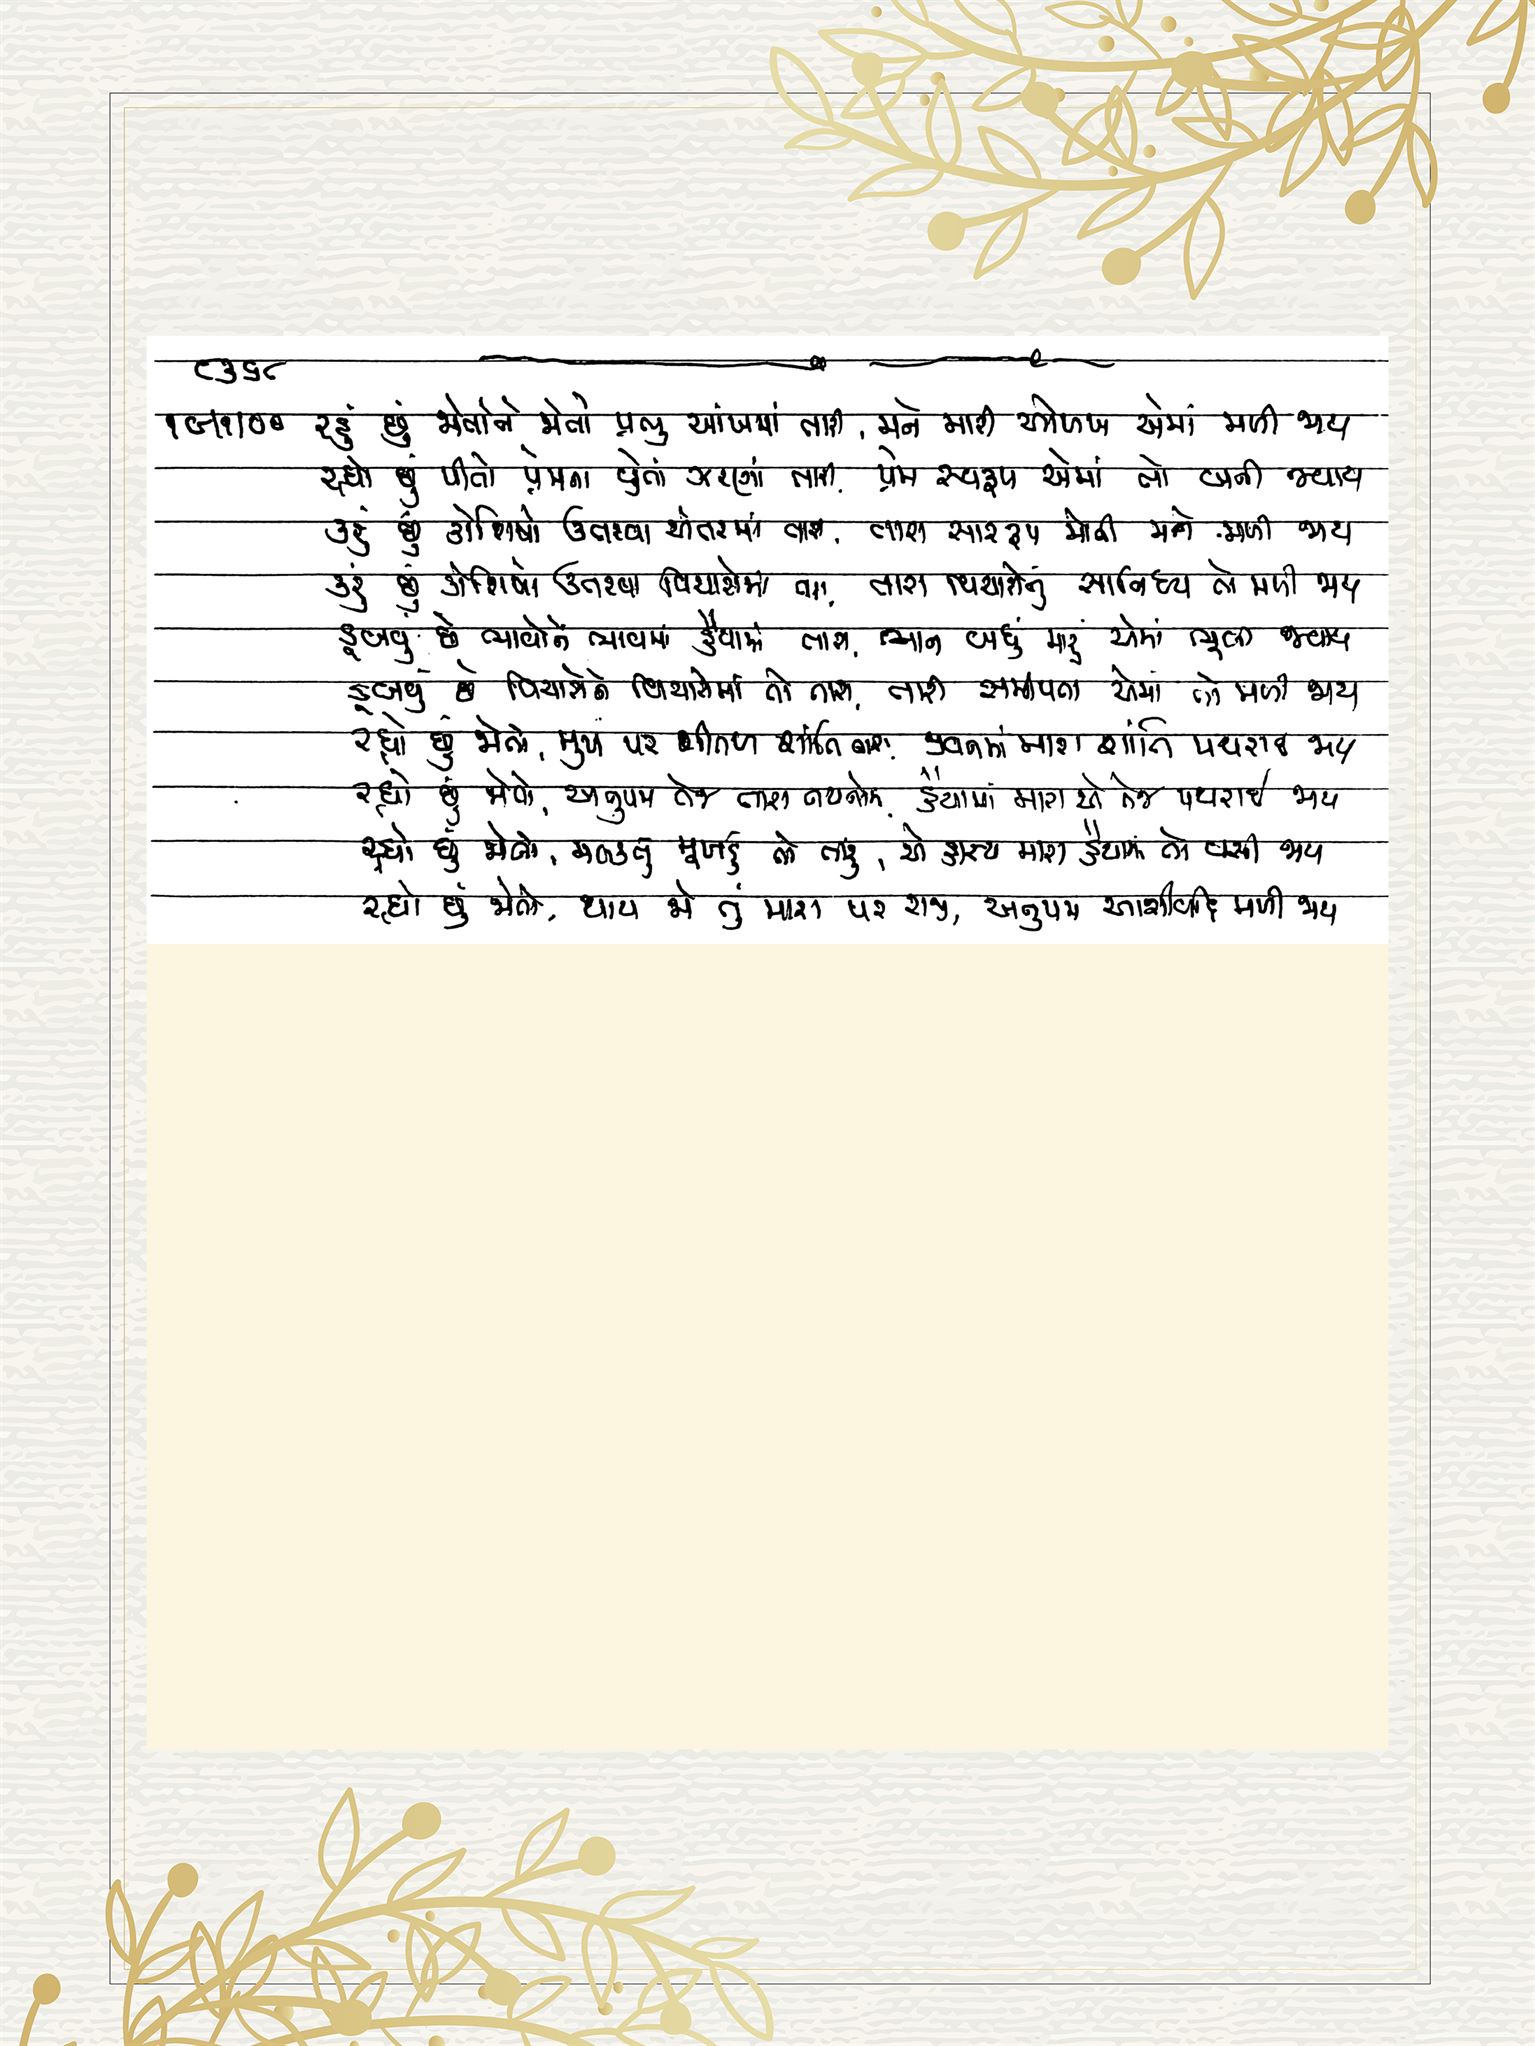 ૮૩૬૮
રહું છું જોતોને જોતો પ્રભુ આંખમાં તારી, મને મારી ઓળખ એમાં મળી જાય
રહ્યો છું પીતો પ્રેમના વ્હેતાં ઝરણાં તારી, પ્રેમ સ્વરૂપ એમાં તો બની જવાય
કરું છું કોશિશો ઉતરવા અંતરમાં તારા, તારા સારરૂપ મોતી મને મળી જાય
કરું છું કોશિશો ઉતરવા વિચારોમાં તારા, તારા વિચારોનું સાનિધ્ય તો મળી જાય
ડૂબવું છે ભાવોને ભાવમાં હૈયામાં તારા, ભાન બધું મારું એમાં ભૂલી જવાય
ડૂબવું છે વિચારોને વિચારોમાં તો તારા, તારી સમીપતા એમાં તો મળી જાય
રહ્યો છું જોતો, મુખ પર શીતળ શાંતિ તારા, જીવનમાં મારા શાંતિ પથરાઈ જાય
રહ્યો છું જોતો, અનુપમ તેજ તારા નયનોમાં, હૈયામાં મારા એ તેજ પથરાઈ જાય
રહ્યો છું જોતો, મલકતું મુખડું તો તારું, એ હાસ્ય મારા હૈયામાં તો વસી જાય
રહ્યો છું જોતો, થાય જો તું મારા પર રાજી, અનુપમ આશીર્વાદ મળી જાય